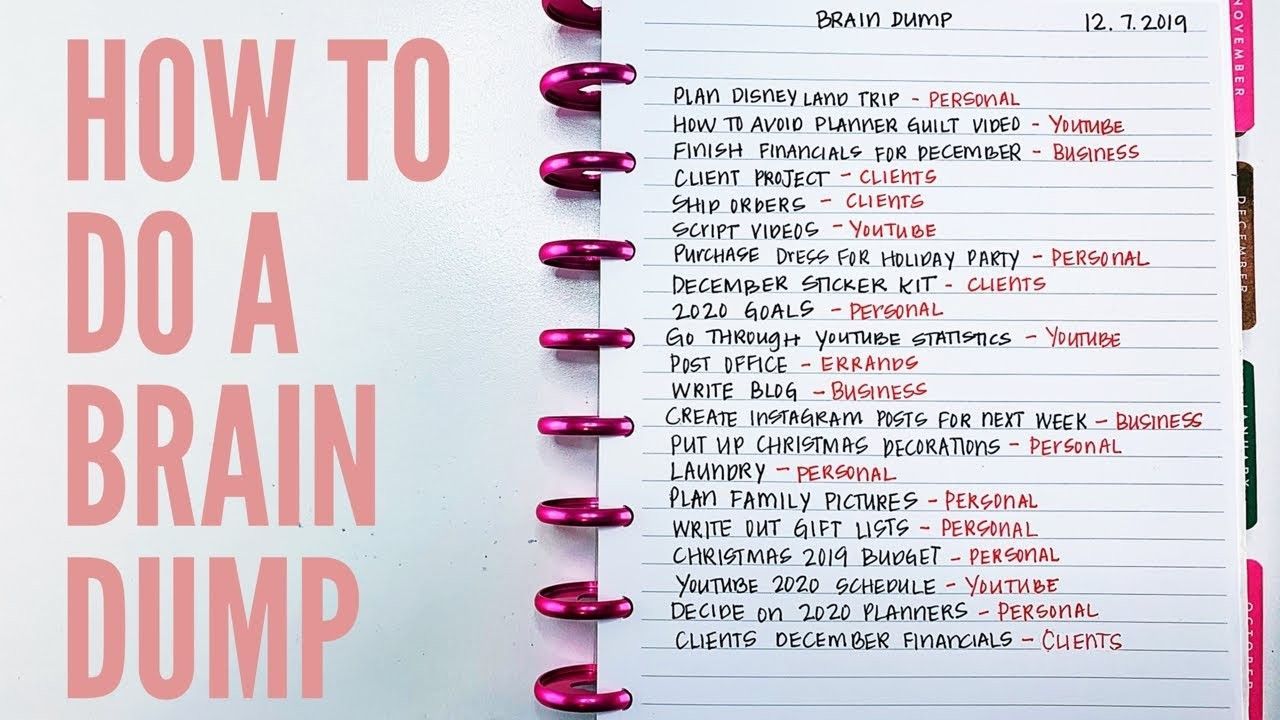 HOW TO
DO A
BRAIN
DUMP
BRAIN DUMP 12.7.2019
PLAN DISNEYLAND TRIP - PERSONAL
HOW TO AVOID PLANNER GUILT VIDEO - YOUTUBE
FINISH FINANCIALS FOR DECEMBER - BUSINESS
CLIENT PROJECT - CLIENTS
SHIP ORDERS - CLIENTS
SCRIPT VIDEOS - YOUTUBE
PURCHASE DRESS FOR HOLIDAY PARTY - PERSONAL
DECEMBER STICKER KIT - CLIENTS
2020 GOALS - PERSONAL
GO THROUGH YOUTUBE STATISTICS - YOUTUBE
POST OFFICE - ERRANDS
WRITE BLOG - BUSINESS
CREATE INSTAGRAM POSTS FOR NEXT WEEK - BUSINESS
PUT UP CHRISTMAS DECORATIONS - PERSONAL
LAUNDRY - PERSONAL
PLAN FAMILY PICTURES - PERSONAL
WRITE OUT GIFT LISTS - PERSONAL
CHRISTMAS 2019 BUDGET - PERSONAL
YOUTUBE 2020 SCHEDULE - YOUTUBE
DECIDE ON 2020 PLANNERS - PERSONAL
CLIENTS DECEMBER FINANCIALS - CLIENTS
NOVEMBER
DECEMBER
JANUARY
OCTOBER